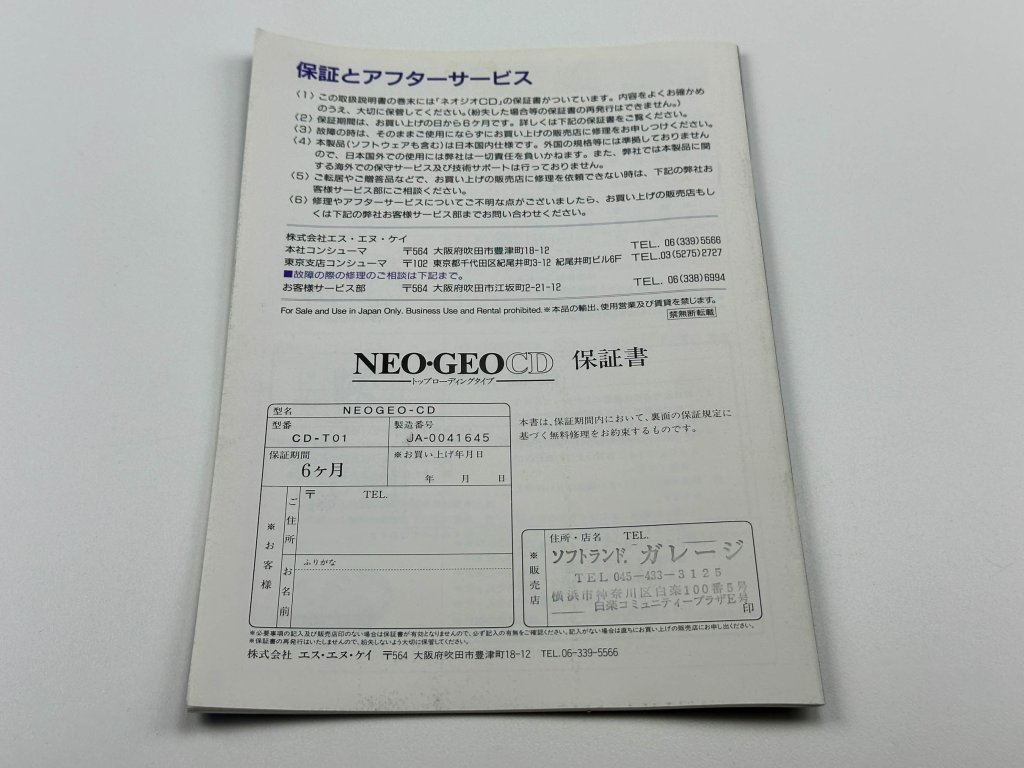 保証とアフターサービス
(1) この取扱説明書の巻末には「ネオジオCD」の保証書がついています。内容をよくお確かめ
のうえ、大切に保管してください。(紛失した場合等の保証書の再発行はできません。)
(2) 保証期間は、お買い上げの日から6ケ月です。詳しくは下記の保証書をご覧ください。
(3) 故障の時は、そのままご使用にならずにお買い上げの販売店に修理をお申しつけください。
(4) 本製品(ソフトウェアも含む)は日本国内仕様です。外国の規格等には準拠しておりません
ので、日本国外での使用には弊社は一切責任を負いかねます。また、弊社では本製品に
関する海外での保守サービス及び技術サポートは行っておりません。
(5) ご転居やご贈答品などで、お買い上げの販売店に修理を依頼できない時は、下記の弊社お
客様サービス部にご相談ください。
(6) 修理やアフターサービスについてご不明な点がございましたら、お買い上げの販売店もし
くは下記の弊社お客様サービス部までお問い合わせください。
株式会社エス・エヌ・ケイ
本社コンシューマ 〒564 大阪府吹田市豊津町18-12 TEL. 06(339)5566
東京支店コンシューマ 〒102 東京都千代田区紀尾井町3-12 紀尾井町ビル6F TEL.03(5275)2727
■故障の際の修理のご相談は下記まで。
お客様サービス部 〒564 大阪府吹田市江坂町2-21-12 TEL. 06(338)6994
For Sale and Use in Japan Only. Business Use and Rental prohibited.※本品の輸出、使用営業及び賃貸を禁じます。
禁無断転載
NEO・GEO CD 保証書
トップローディングタイプ
型名 NEOGEO-CD
型番 製造番号
CD-T01 JA-0041645
保証期間 ※お買い上げ年月日
6ヶ月 年 月 日
※お客様
ご住所 〒 TEL.
お名前 ふりがな
本書は、保証期間内において、裏面の保証規定に
基づく無料修理をお約束するものです。
※販売店
住所・店名 TEL.
ソフトランド. ガレージ
TEL 045-433-3125
横浜市神奈川区白楽100番5号
白楽コミュニティープラザE号
印
※必要事項の記入及び販売店印のない場合は保証書が有効となりませんので、必ず記入の有無をご確認ください。記入がない場合は直ちにお買い上げの販売店にお申し出ください。
※保証書の再発行はいたしませんので、紛失しないよう大切に保管してください。
株式会社 エス・エヌ・ケイ 〒564 大阪府吹田市豊津町18-12 TEL.06-339-5566